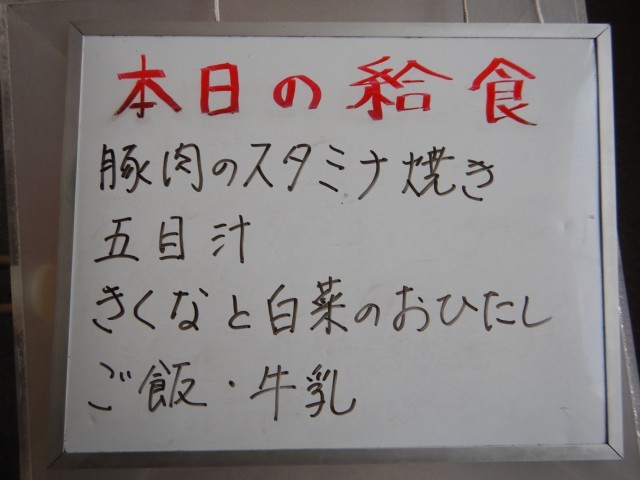 本日の給食
豚肉のスタミナ焼き
五目汁
きくなと白菜のおひたし
ご飯・牛乳